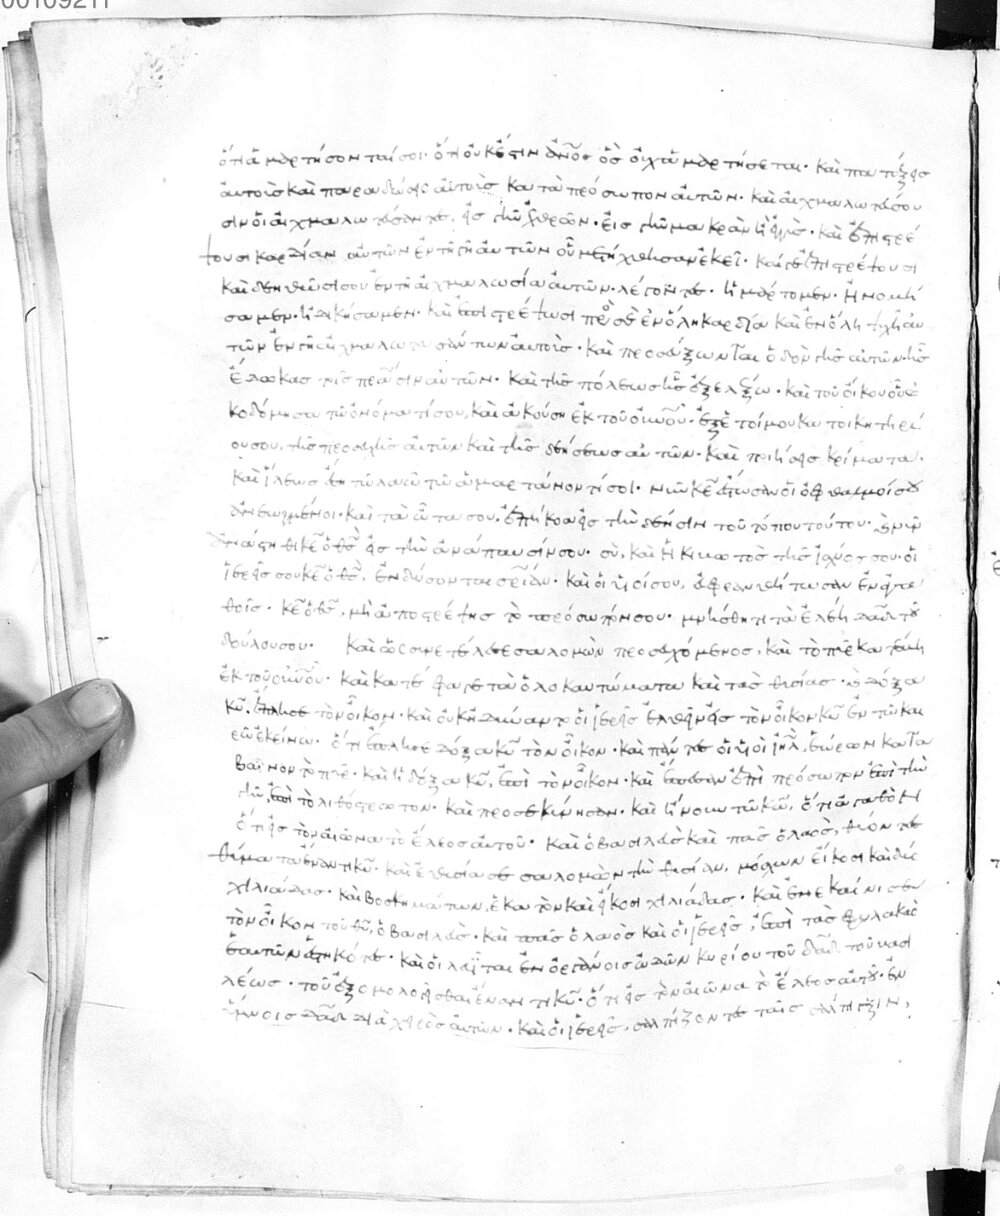 00109211
ὅτι ἁμαρτήσονταί σοι· ὅτι οὐκ ἔστιν ἄνος ὃς οὐχ ἁμαρτήσεται· καὶ πατάξεις
αὐτοὺς καὶ παραδώσεις αὐτοὺς κατὰ πρόσωπον αὐτῶν· καὶ αἰχμαλωτεύσου
σιν οἱ αἰχμαλωτεύοντες εἰς γῆν ἐχθρῶν· εἰς γῆν μακρὰν ἢ ἐγγὺς· καὶ ἐπιστρέ
ψουσι καρδίαν αὐτῶν ἐν τῇ γῇ αὐτῶν οὗ μετήχθησαν ἐκεῖ· καί γε ἐπιστρέψουσι
καὶ δεηθῶσί σου ἐν τῇ αἰχμαλωσίᾳ αὐτῶν· λέγοντες· ἡμάρτομεν· ἠνομή
σαμεν· ἠδικήσαμεν· καὶ ἐπιστρέψωσι πρὸς σὲ ἐν ὅλῃ καρδίᾳ καὶ ἐν ὅλῃ ψυχῇ αὐ
τῶν ἐν γῇ αἰχμαλωτευσάντων αὐτοὺς· καὶ προσεύξωνται ὁδὸν γῆς αὐτῶν· ἧς
ἔδωκας τοῖς πράσιν αὐτῶν· καὶ τῆς πόλεως ἧς ἐξελέξω· καὶ τοῦ οἴκου οὗ ὠ
κοδόμησα τῶ ὀνόματί σου, καὶ ἀκούση ἐκ τοῦ οὐνοῦ· ἐξ ἑτοίμου κατοικητηρί
ου σου, τῆς προσευχῆς αὐτῶν καὶ τῆς δεήσεως αὐτῶν· καὶ ποιήσεις κρίματα·
καὶ ἵλεως ἔση τῶ λαῶ τῶ ἁμαρτάνοντί σοι· νῦν κε ἔστωσαν οἱ ὀφθαλμοί σου
ἀνεωγμένοι· καὶ τὰ ὦτά σου, ἐπήκοα εἰς τὴν δέησιν τοῦ τόπου τούτου· καὶ νῦν
ἀνάστηθι κε ὁ θς εἰς τὴν ἀνάπαυσίν σου· σὺ, καὶ ἡ κιβωτὸς τῆς ἰσχύος σου· οἱ
ἱερεῖς σου κε ὁ θς, ἐνδύσονται σρίαν· καὶ οἱ υἱοί σου, εὐφρανθήτωσαν ἐν ἀγα
θοῖς· κε ὁ θς, μὴ ἀποστρέψης τὸ πρόσωπόν σου· μνήσθητι τὰ ἐλέη δαδ τοῦ
δούλου σου· καὶ ὡς συνετέλεσε σαλομὼν προσευχόμενος, καὶ τὸ πῦρ κατέβη
ἐκ τοῦ οὐνοῦ· καὶ κατέφαγε τὰ ὁλοκαυτώματα καὶ τὰς θυσίας· καὶ δόξα
κυ, ἔπλησε τὸν οἶκον· καὶ οὐκ ἠδύναντο οἱ ἱερεῖς εἰσελθεῖν εἰς τὸν οἶκον κυ ἐν τῶ και
ρῶ ἐκείνω· ὅτι ἔπλησε δόξα κυ τὸν οἶκον· καὶ πάντες οἱ υἱοὶ ιηλ, ἑώρων κατα
βαῖνον τὸ πῦρ· καὶ ἡ δόξα κυ, ἐπὶ τὸν οἶκον· καὶ ἔπεσον ἐπὶ πρόσωπον ἐπὶ τὴν
γῆν, ἐπὶ τὸ λιθόστρωτον· καὶ προσεκύνησαν· καὶ ἤνουν τῶ κω, ὅτι ἀγαθὸν
ὅτι εἰς τὸν αἰῶνα τὸ ἔλεος αὐτοῦ· καὶ ὁ βασιλεὺς καὶ πᾶς ὁ λαὸς, θύοντες
θύματα ἔναντι κυ· καὶ ἐθυσίασε σαλομὼν τὴν θυσίαν, μόσχων εἴκοσι καὶ δύο
χιλιάδας· καὶ βοσκημάτων, ἑκατὸν καὶ εἴκοσι χιλιάδας· καὶ ἐνεκαίνισεν
τὸν οἶκον τοῦ θυ, ὁ βασιλεὺς· καὶ πᾶς ὁ λαὸς καὶ οἱ ἱερεῖς, ἐπὶ τὰς φυλακὰς
ἑαυτῶν ἑστηκότες· καὶ οἱ λευῖται ἐν ὀργάνοις ὠδῶν κυρίου τοῦ δαδ τοῦ βασι
λέως· τοῦ ἐξομολογεῖσθαι ἔναντι κυ· ὅτι εἰς τὸν αἰῶνα τὸ ἔλεος αὐτοῦ· ἐν
ὕμνοις δαδ διὰ χειρὸς αὐτῶν· καὶ οἱ ἱερεῖς, σαλπίζοντες ταῖς σάλπιγξιν,